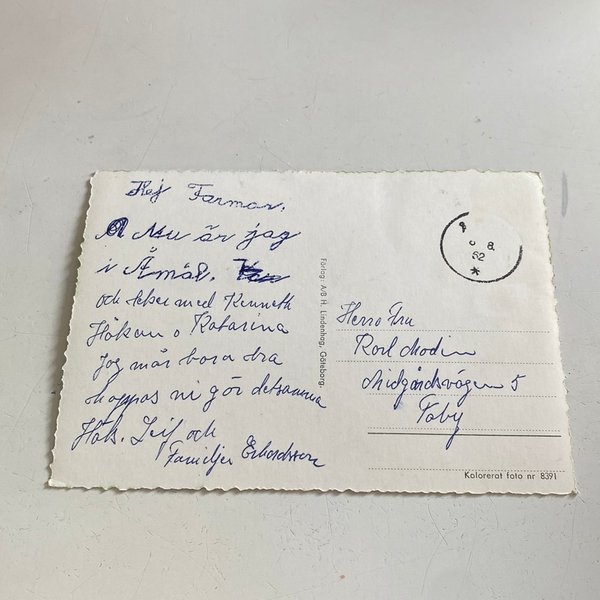 Hej Farmor.
Nu är jag
i Åmål.
och leker med Kenneth
Håkan o Katarina
Jag mår bara bra
hoppas ni gör detsamma
Häls. Leif och
Familjen
Förlag: A/B H. Lindenhag, Göteborg.
62
Herr o Fru
Modin
Midgårdsvägen 5
Täby
Kolorerat foto nr 8391